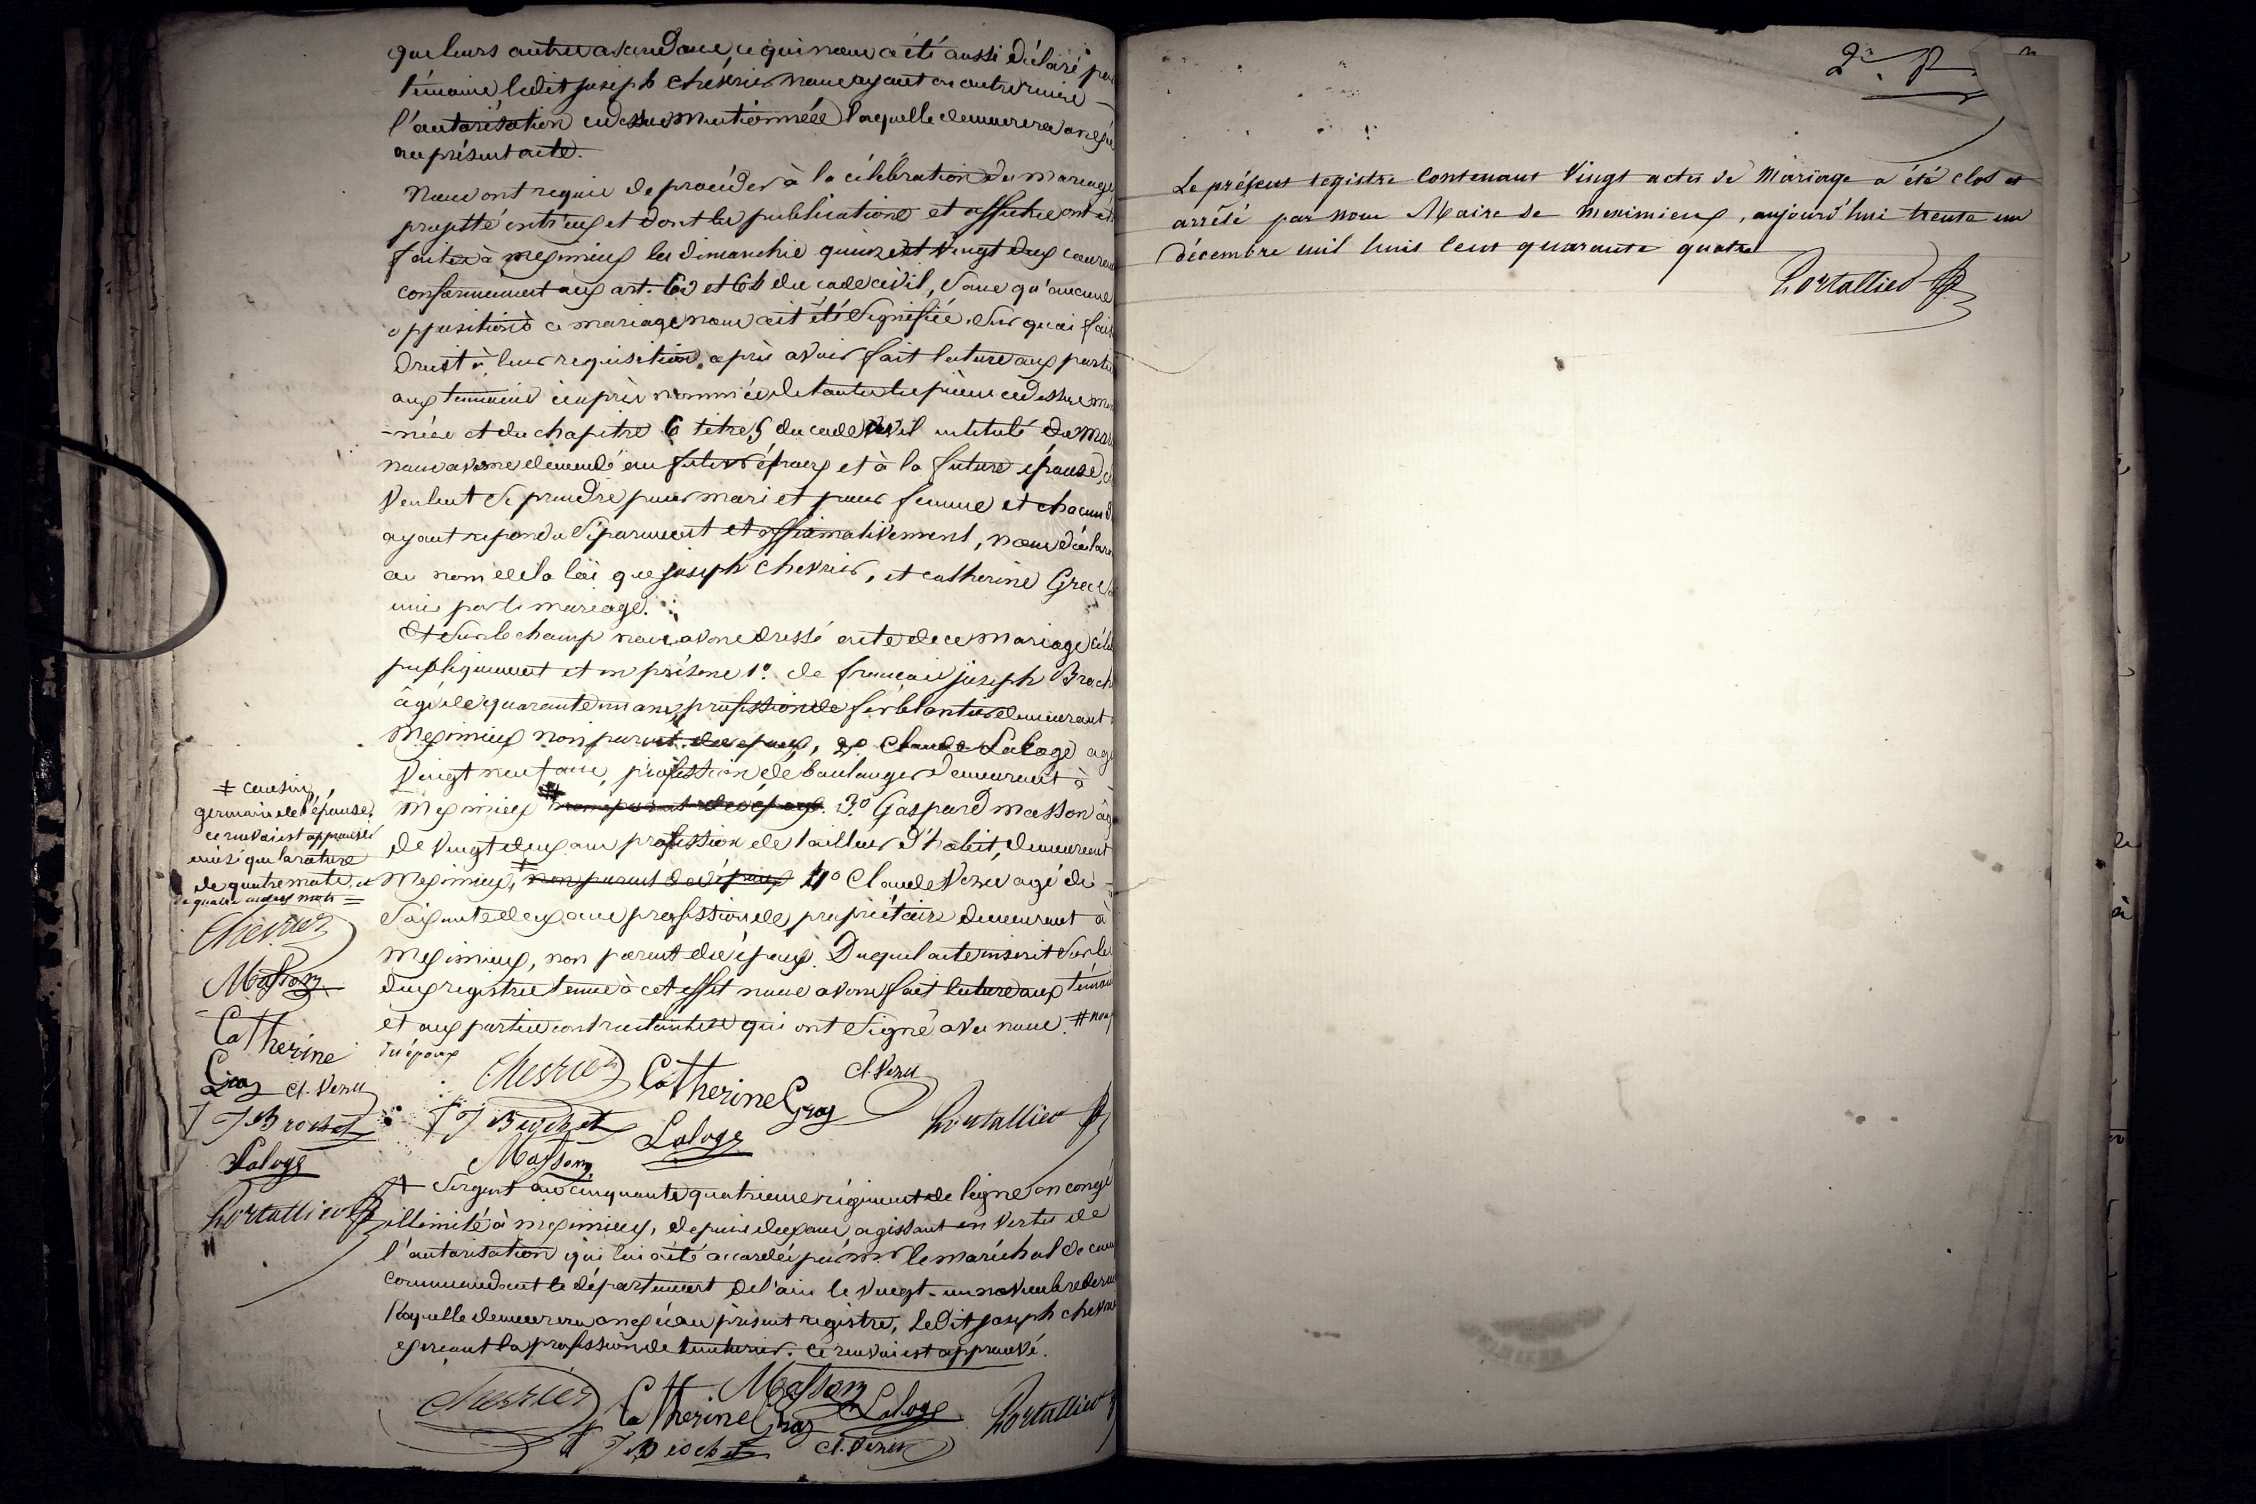 que leurs autres ascendans, ce qui nous a été aussi déclaré par
témoins ledit joseph chevrier nous ayant en outre remis
l'autorisation cidessus mentionnée laquelle demeurera anexée
au présent acte.
Nous ont requis de procéder à la célébration du mariage
projetté entr'eux et dont les publications et affiches ont été
faites à meximieux les dimanches quinze et vingt deux courant
conformément aux art. 63 et 64 du code civil, sans qu'aucune
opposition à ce mariage nous ait été signifiée. Sur quoi fais
droit à leur requisition, après avoir fait lecture aux parties
aux témoins ciaprès nommés de toutes les pièces cidessus men
-nées et du chapitre 6 titre 5 du code civil intitulé du mar
nous avons demandé au futur époux et à la future épouse, s
veulent se prendre pour mari et pour femme et chacun d
ayant repondu séparément et affirmativement, nous déclaro
au nom de la loi que joseph chevrier, et catherine Gros s
unis par le mariage.
Et sur le champ nous avons dressé acte de ce mariage célé
publiquement et en présence 1º. de françois joseph Broch
âgé de quarante un ans, profession de ferblantier demeurant
Meximieux non parent des époux, 2º Claude Laloge agé
vingt neuf ans, profession de boulanger demeurant à
Meximieux # non parent des époux. 3º Gaspard masson âgé
de vingt deux ans profession de tailleur d'habit, demeurant
Meximieux, ‡ non parent des époux 4º Claude Venu agé de
soixante deux ans profession de propriétaire demeurant à
meximieux, non parent des époux. Duquel acte inscrit sur le
deux registres tenus à cet effet nous avons fait lecture aux témoi
et aux parties contractantes qui ont signé avec nous. # non p
des époux
Chevrier Catherine Gros cl. Venu
fJ Brochet Laloge Portallier
Masson
‡ Sergent au cinquante quatrieme régiment de ligne en congé
illimité à meximieux, depuis deux ans agissant en vertu de
l'autorisation qui lui a été accordée par mr. le maréchal de cam
commandant le département de l'ain le vingt-un novembre dernie
laquelle demeurera anexée au présent registre, ledit joseph chevrie
exerçant la profession de teinturier. ce renvoi est approuvé.
Chevrier Masson
Catherine Gros Laloge Portallier
fJ Brochet cl. Venu
‡ cousin
germain de l'épouse.
ce renvoi est approuvé
ainsi que la rature
de quatre mots, et
de quatre autres mots =
Chevrier
Masson
Catherine
Gros cl. Venu
fJ Brochet
Laloge
Portallier
Le présent registre contenant vingt actes de Mariage a été clos et
arrêté par nous Maire de Meximieux, aujourd'hui trente un
décembre mil huit cent quarante quatre
Portallier